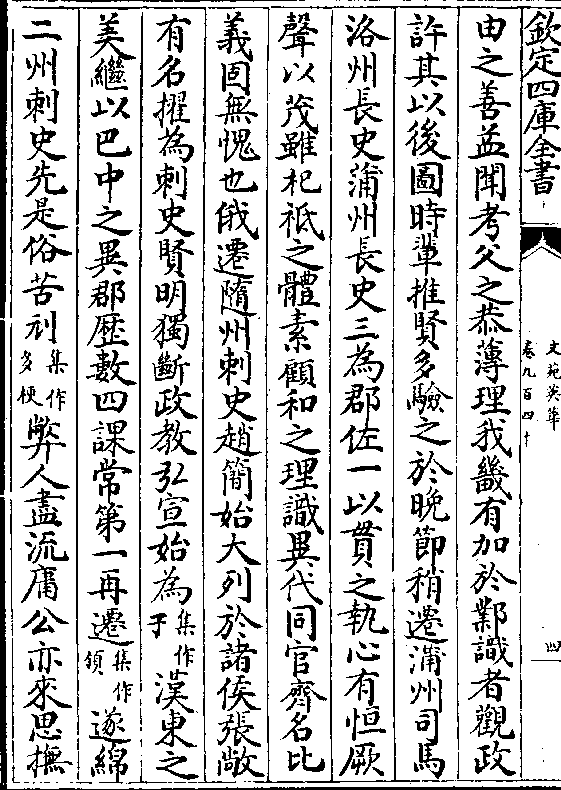 欽定四庫全書
文苑英華
卷九百四十
四
由之善益聞考父之恭薄理我畿有加於酇識者觀政
許其以後圖時輩推賢多驗之於晚節稍遷蒲州司馬
洛州長史蒲州長史三為郡佐一以貫之執心有恒厥
聲以茂雖杞祗之體素顧和之理識異代同官齊名比
義固無愧也俄遷隨州刺史趙簡始大列於諸侯張敞
有名擢為刺史賢明獨斷政教弘宣始為集作于漢東之
美繼以巴中之異郡歷數四課常第一再遷集作領遂綿
二州刺史先是俗苦利集作多梗弊人盡流庸公亦來思撫